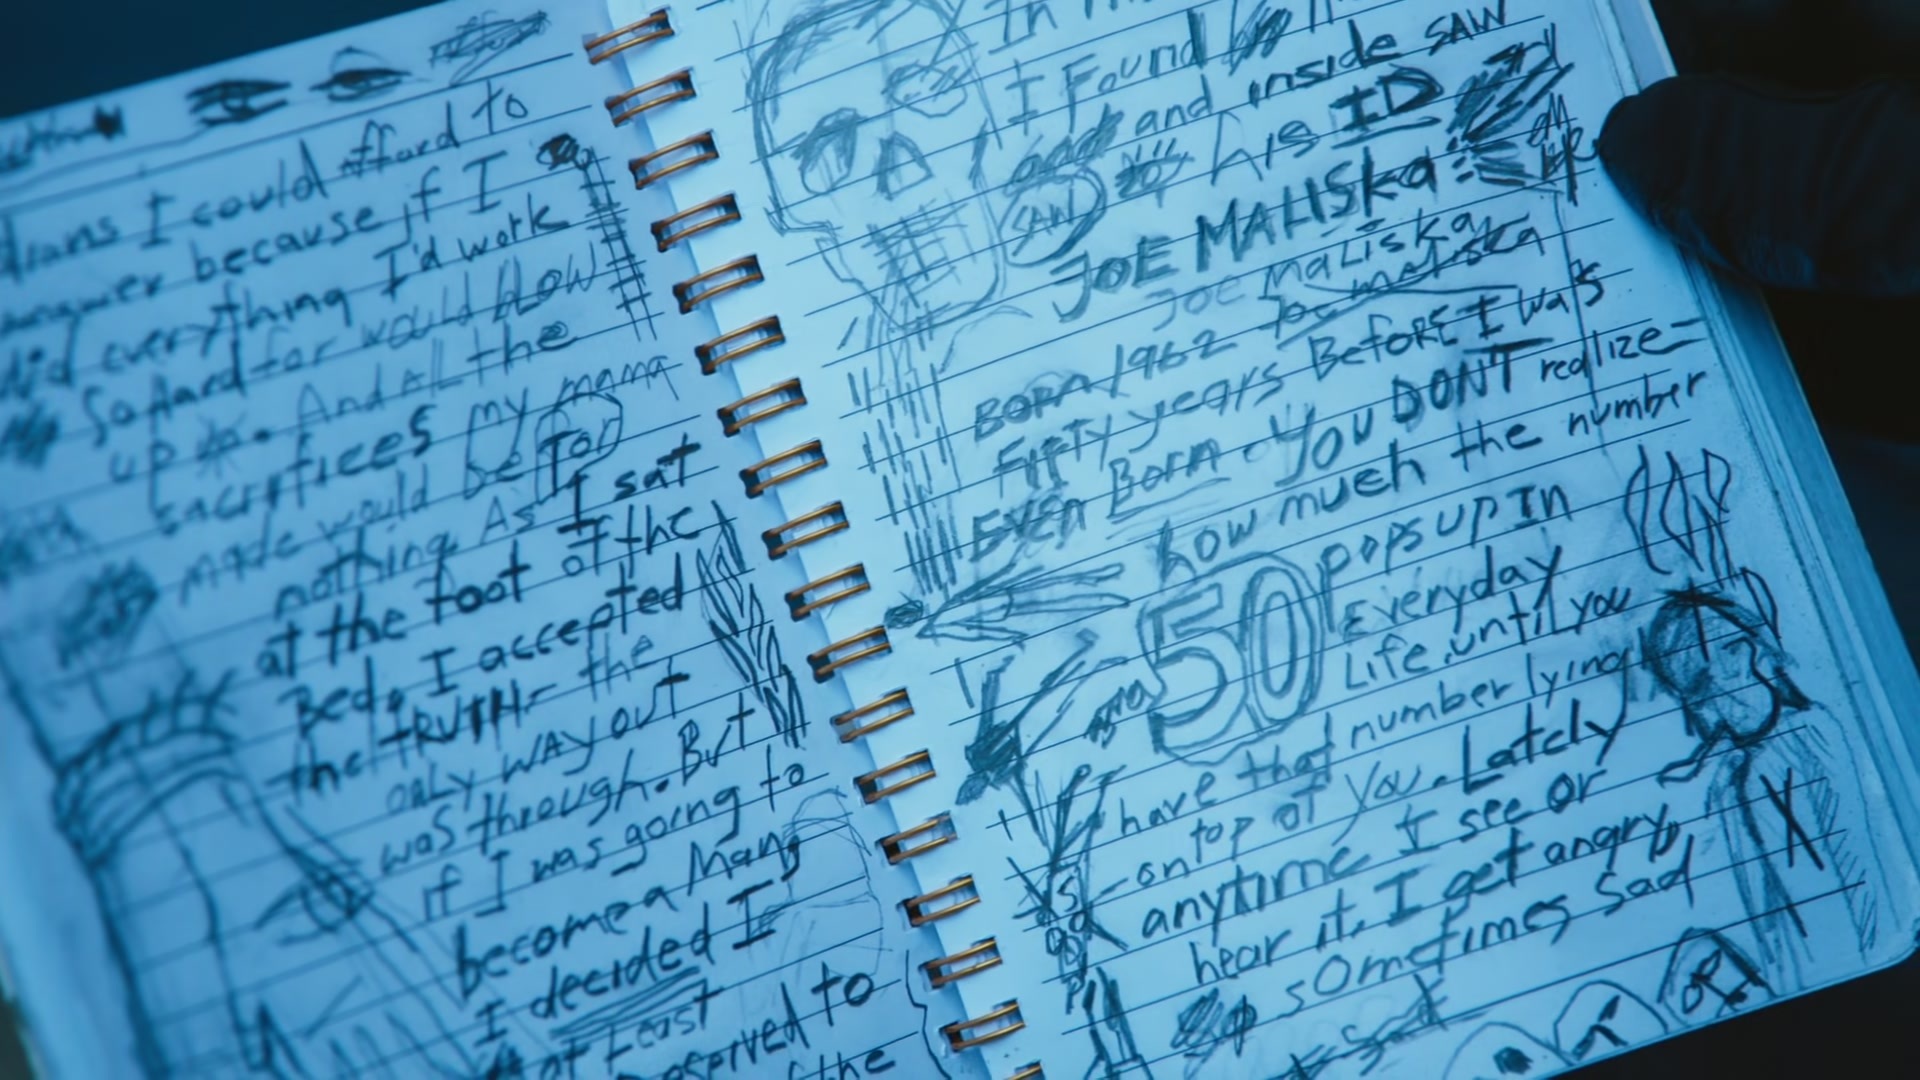 I could afford to
answer because if I
did everything I'd work
so hard for would blow
up. And ALL the
sacrifices my mama
made would be for
nothing As I sat
at the foot of the
Bed. I accepted
the TRUTH- the
ONLY WAY OUT
was through. But
if I was going to
become a Man,
I decided I
at Least
deserved to
the
I Found
and and inside SAW
SAW his ID
JOE MALISKA
Joe Maliska
Joe maliska
BORN 1962
Fifty years Before I was
EVEN Born. You DON'T realize-
how much the number
50 pops up IN
Everyday
Life, until you
have that number lying
-on top of you. Lately
anytime I see or
hear it. I get angry,
sometimes Sad
Sad